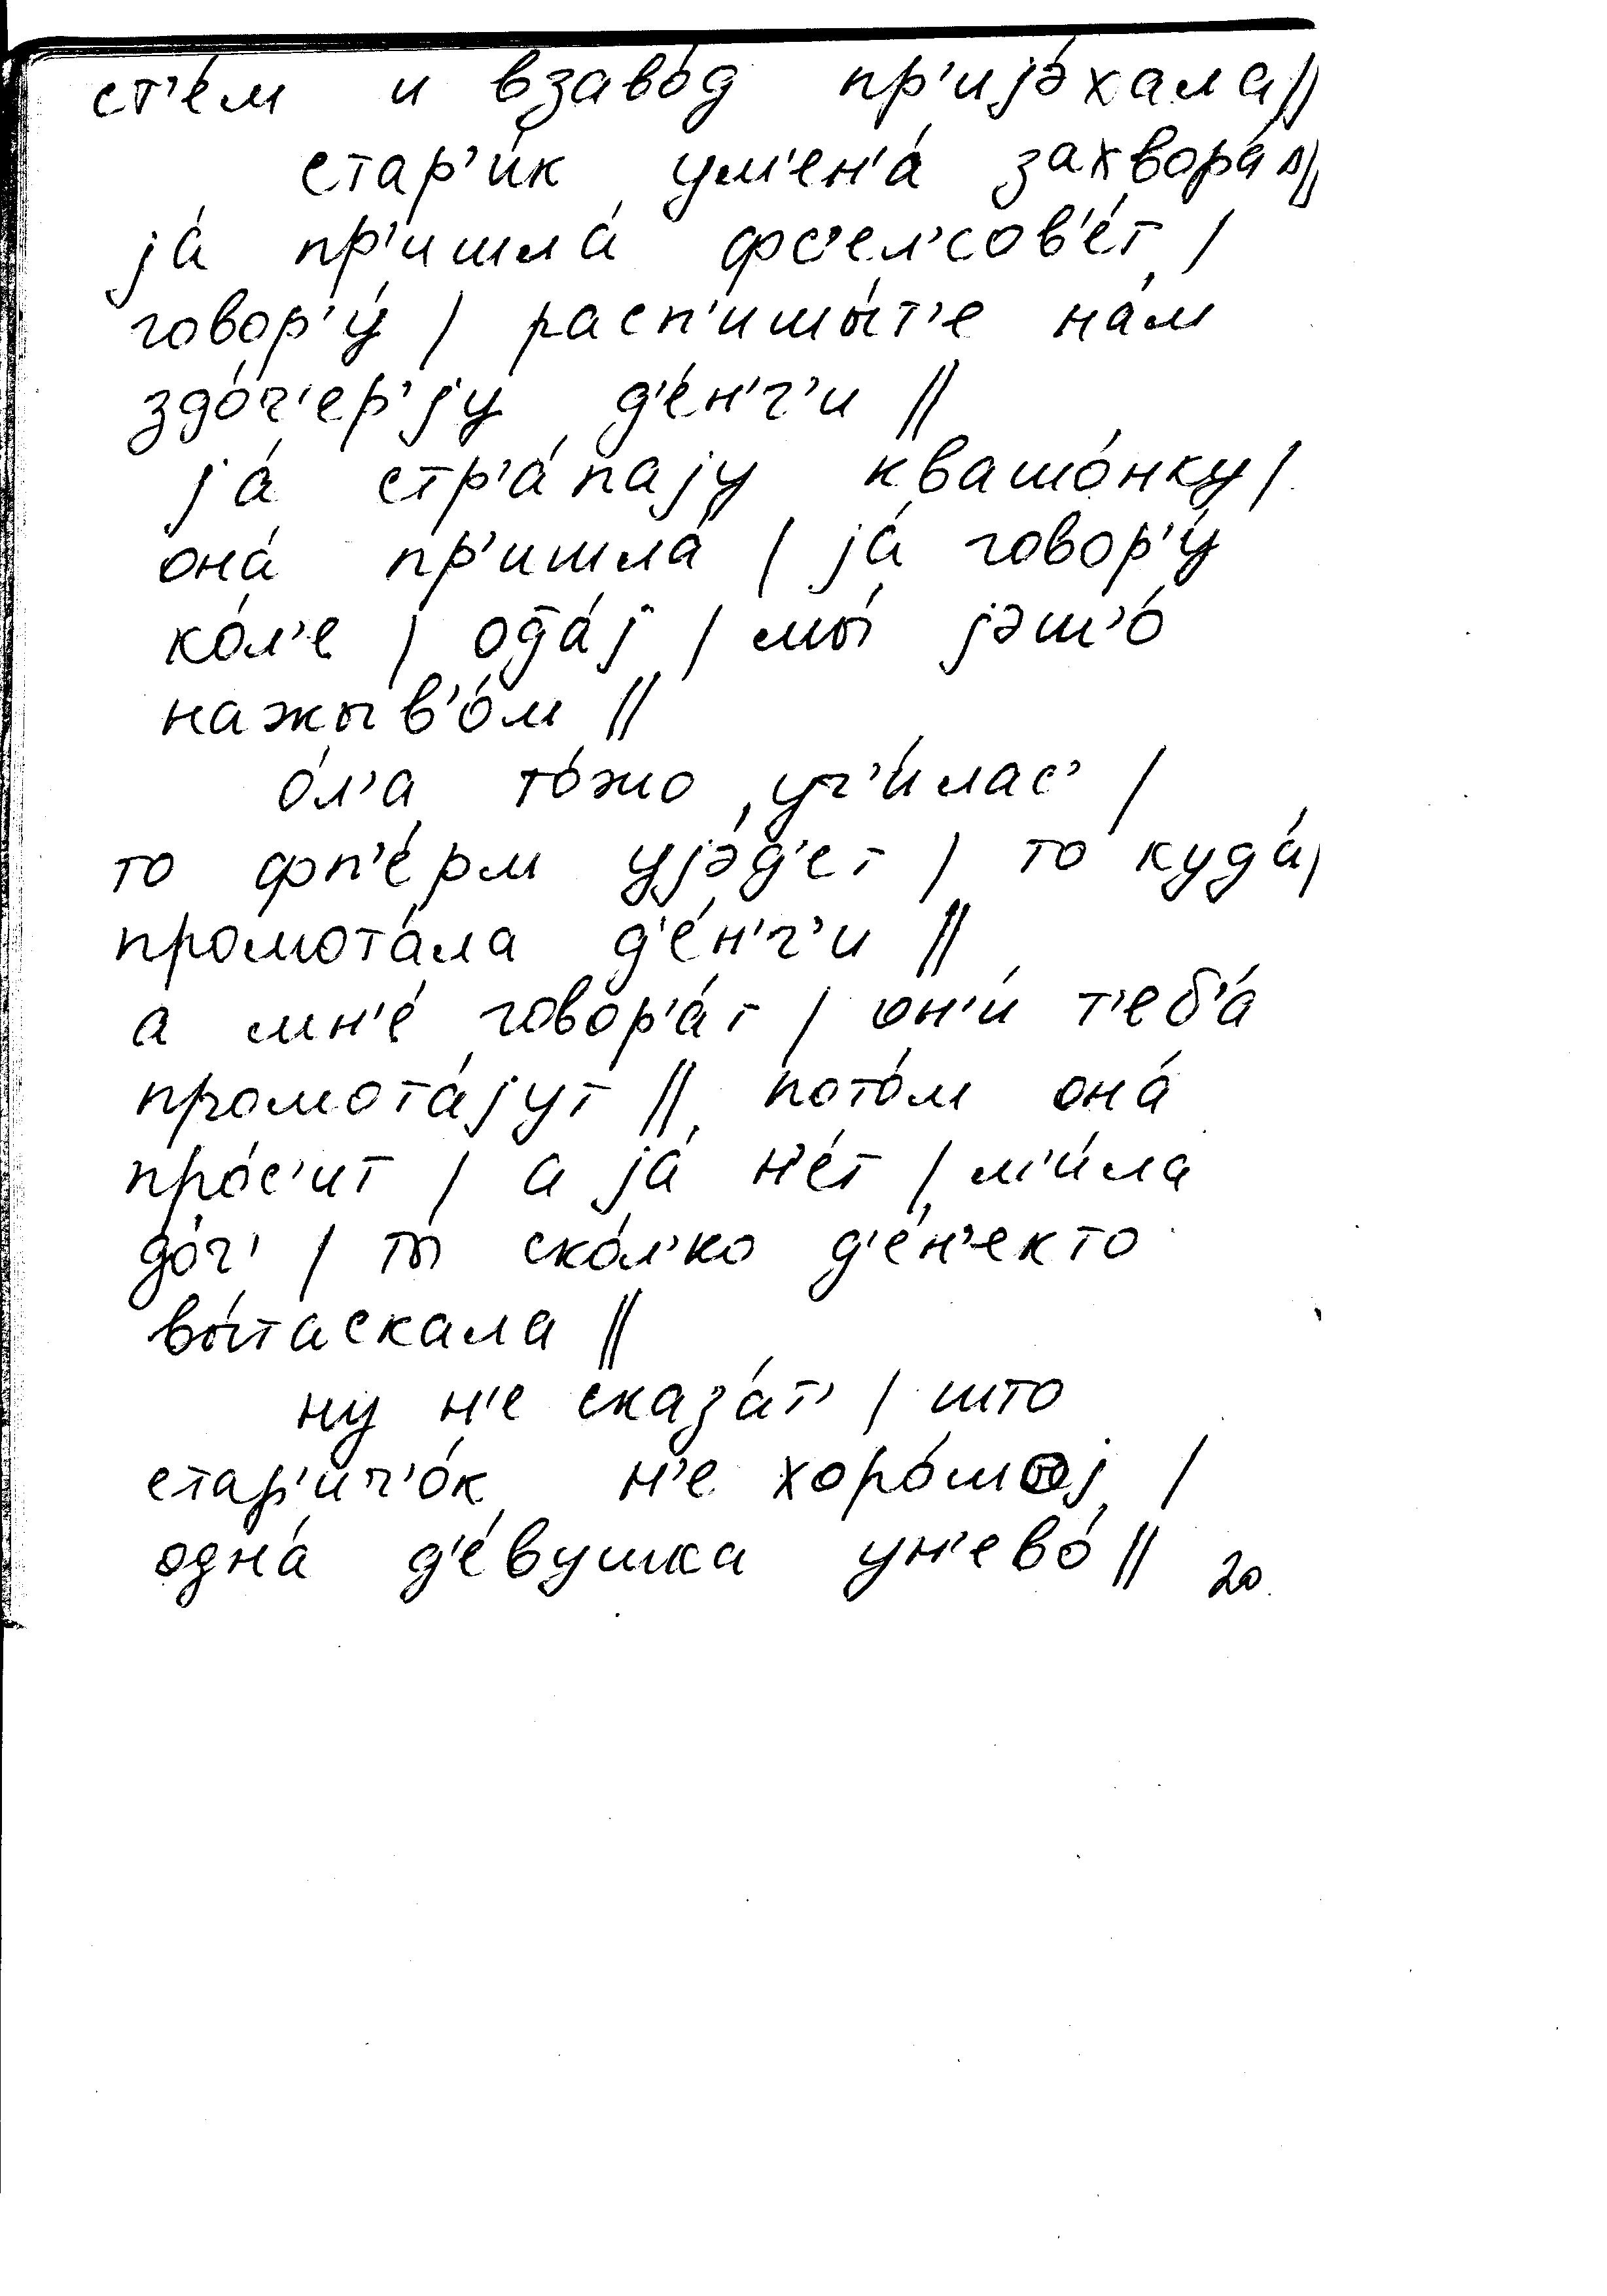 ст'е́м и взаво́д пр'иjэ́хала||
стар'и́к ум'ен'а́ захвора́л||
jа́ пр'ишла́ фс'ел'сов'е́т |
говор'у́ | расп'ишы́т'е на́м
здо́ч'ер'jу д'е́н'г'и ||
jа́ стр'а́паjу квашо́нку|
она́ пр'ишла́ | jа́ говор'у́
ко́л'е | од̄а́j | мы́ jэш'о́
нажыв'о́м ||
о́л'а то́жо уч'и́лас' |
то фп'е́рм уjэ́д'ет | то куда́|
промота́ла д'е́н'г'и ||
а мн'е́ говор'а́т | он'и́ т'еб'а́
промота́jут || пото́м она́
про́с'ит | а jа́ н'е́т | м'и́ла
до́ч' | ты́ ско́л'ко д'е́н'екто
вы́таскала ||
ну н'е сказа́т' | што
стар'ич'о́к н'е хоро́шоj |
одна́ д'е́вушка ун'ево́ || 20.